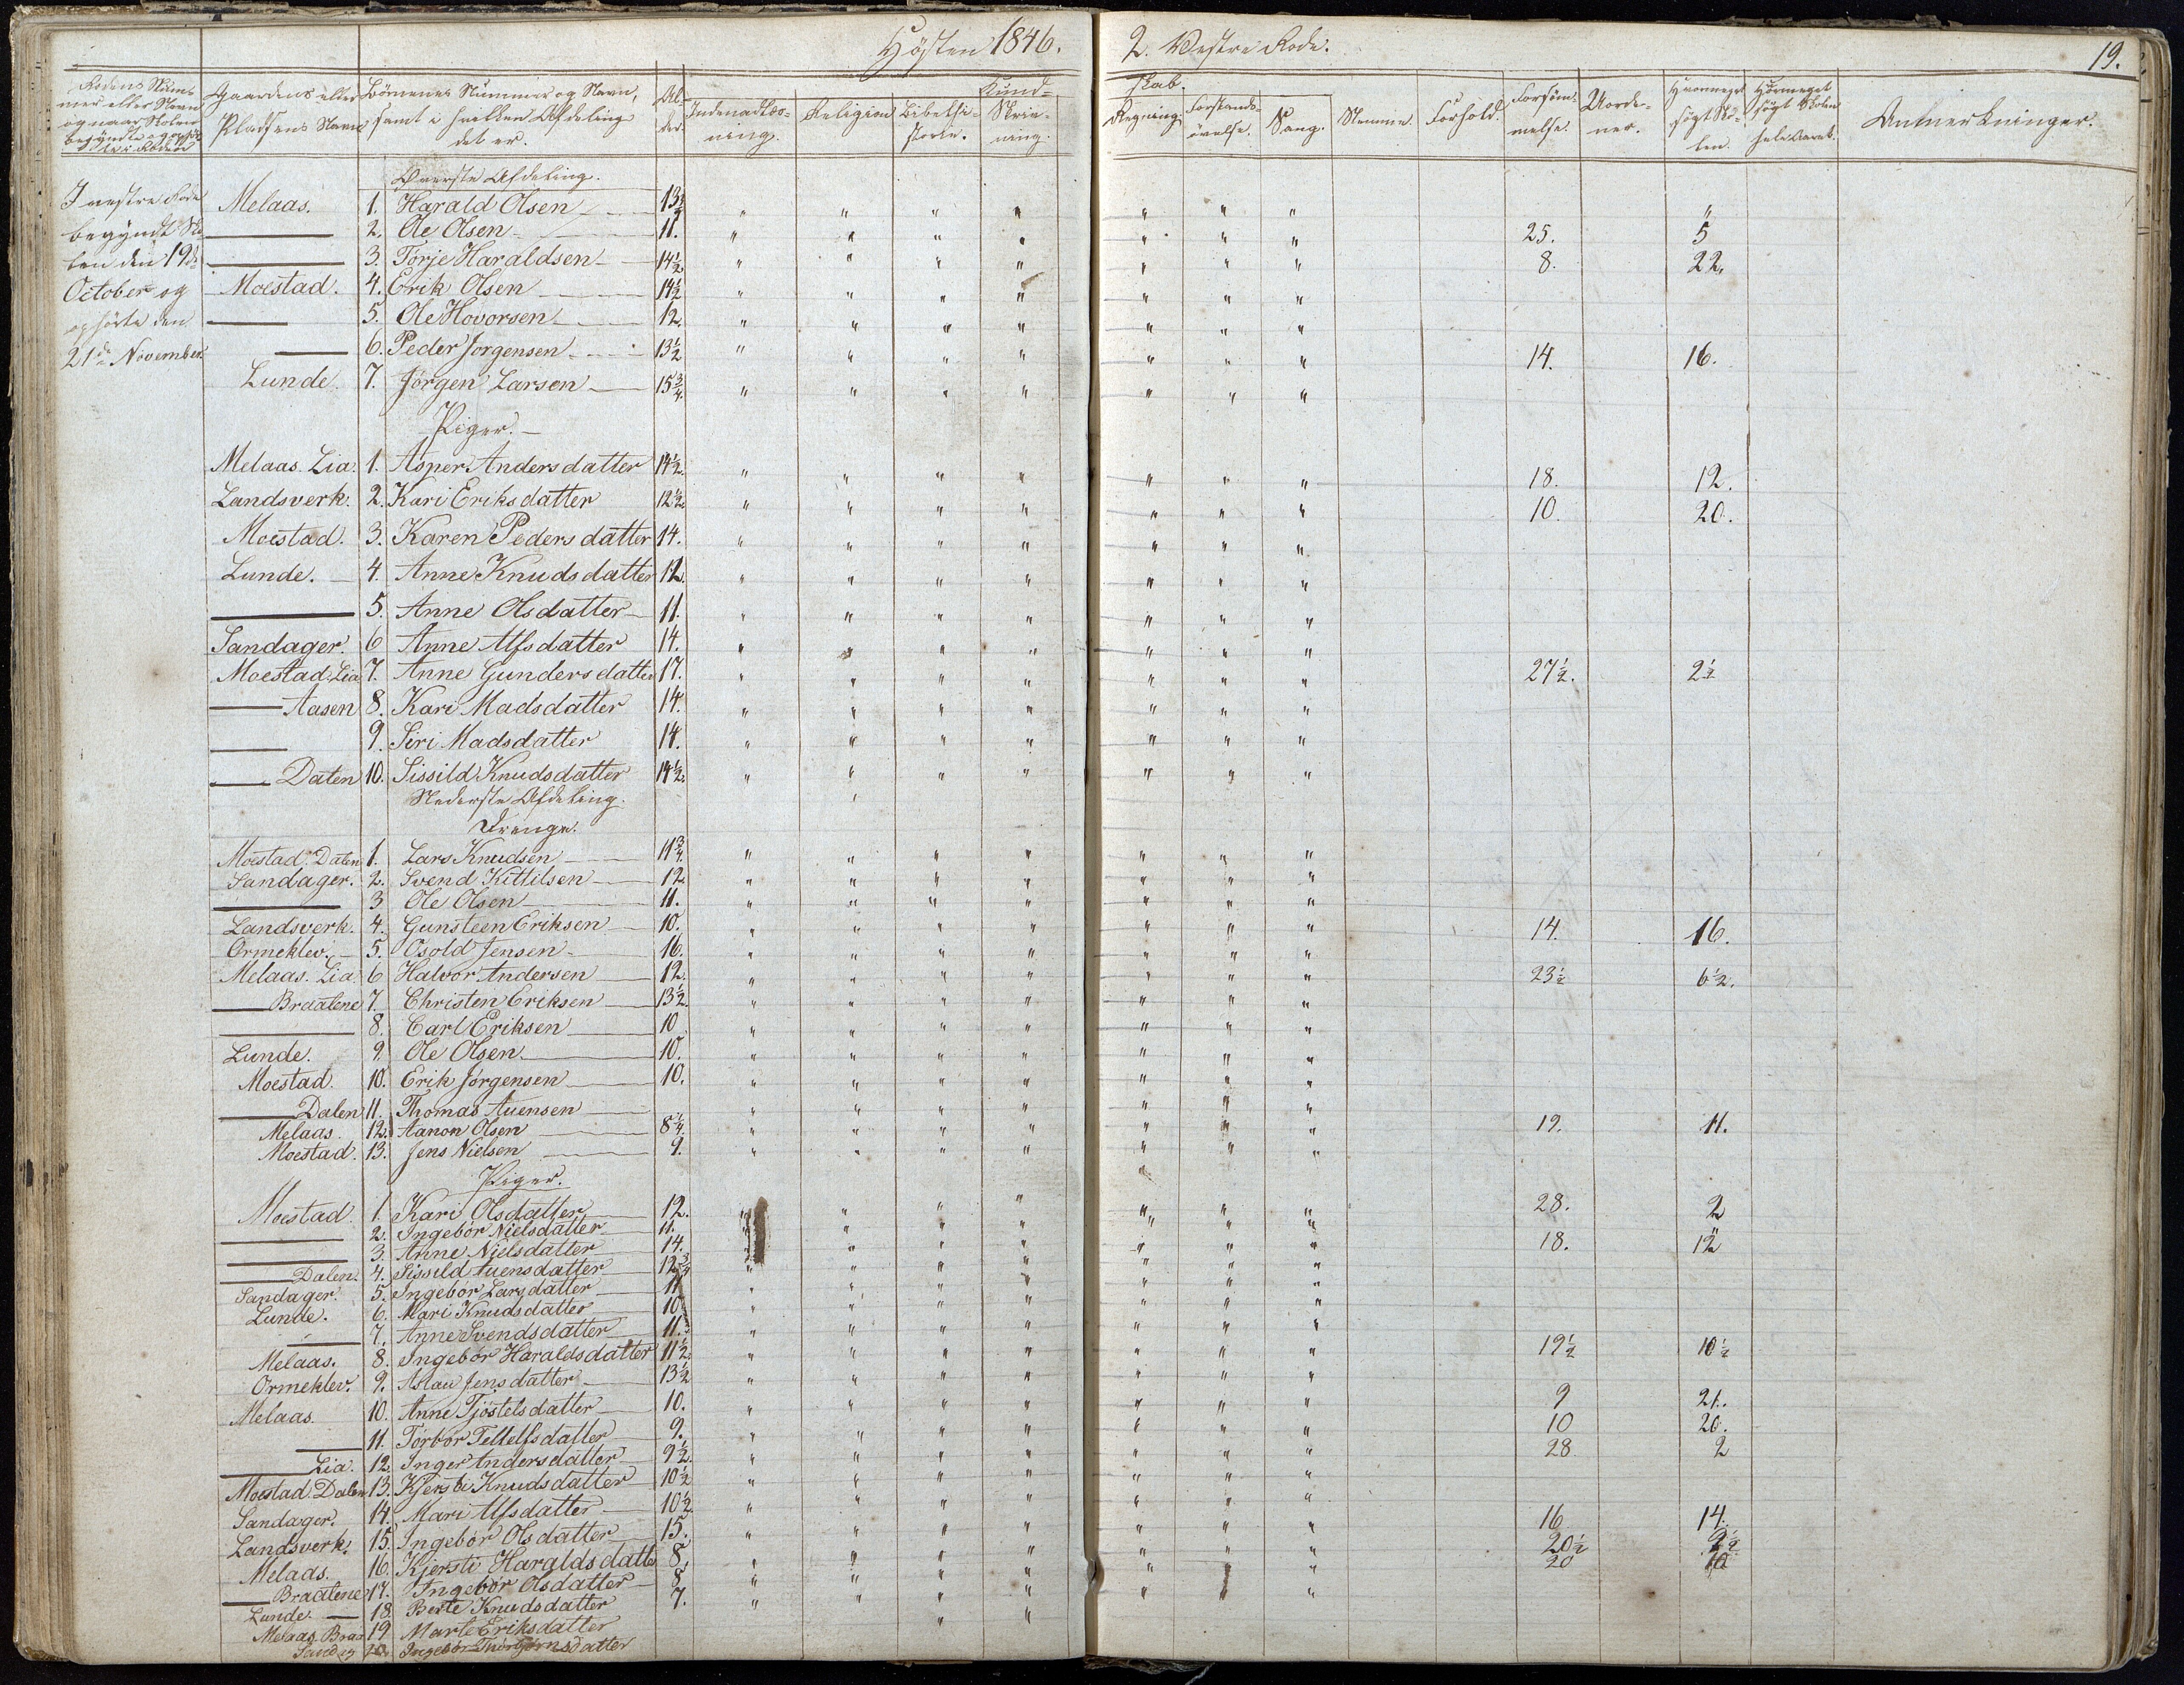 Høsten 1846.
2. Vestre Rode.
19.
Rodens Num-
mer eller Navn
og naar Skolen
begyndte og ophør-
te i Roden
Gaardens eller
Pladsens Navn
Børnenes Nummer og Navn,
samt i hvilken Afdeling
det er.
Al-
der.
Kund-
skab.
Indenadlæs-
ning.
Religion
Bibelhi-
storie.
Skriv-
ning.
Regning.
Forstands-
øvelse.
Sang.
Stemme.
Forhold.
Forsøm-
melse.
Uorde-
ner.
Hvormeget
søgt Sko-
len.
Hvormeget
søgt Skolen
hele Aaret.
Anmerkninger.
I vestre Rode
begyndt Sko-
len den 19de
October og
ophørte den
21de November.
Øverste Afdeling.
Melaas. 1. Harald Olsen 13½ " " " " " " " "
— 2. Ole Olsen 11. " " " " " " " 25. 5
— 3. Torje Haraldsen 14½ " " " " " " " 8. 22.
Moestad. 4. Erik Olsen 14½ " " " " " " "
— 5. Ole Hovorsen 12. " " " " " " "
— 6. Peder Jorgensen 13½ " " " " " " " 14. 16.
Lunde. 7. Jørgen Larsen 15¾ " " " " " " "
Piger.
Melaas. Lia. 1. Asper Andersdatter 14½. " " " " " " " 18. 12.
Landsverk. 2. Kari Eriksdatter 12½ " " " " " " " 10. 20.
Moestad. 3. Karen Pedersdatter 14. " " " " " " "
Lunde. 4. Anne Knudsdatter 12. " " " " " " "
— 5. Anne Olsdatter 11. " " " " " " "
Sandager. 6 Anne Alfsdatter 14. " " " " " " "
Moestad. Lia 7. Anne Gundersdatter 17. " " " " " " " 27½. 2½
— Aasen 8. Kari Madsdatter 14. " " " " " " "
— 9. Siri Madsdatter 14. " " " " " " "
— Dalen 10. Sissild Knudsdatter 14½. " " " " " " "
Nederste Afdeling.
Drenge.
Moestad. Dalen 1. Lars Knudsen 11¾. " " " " " " "
Sandager. 2. Svend Kittilsen 12 " " " " " " "
— 3 Ole Olsen 11. " " " " " " "
Landsverk. 4. Gunsteen Eriksen 10. " " " " " " " 14. 16.
Ormeklev. 5. Osold Jensen 16. " " " " " " "
Melaas. Lia 6 Halvor Andersen 12. " " " " " " " 23½ 6½.
— Braatene 7. Christen Eriksen 13½. " " " " " " "
— 8. Carl Eriksen 10 " " " " " " "
Lunde. 9. Ole Olsen 10. " " " " " " "
Moestad. 10. Erik Jørgensen 10. " " " " " " "
— Dalen 11. Thomas Auensen " " " " " " "
Melaas. 12. Aanon Olsen 8¼. " " " " " " " 19. 11.
Moestad. 13. Jens Nielsen 9. " " " " " " "
Piger.
Moestad. 1. Kari Olsdatter 12. " " " " " " " 28. 2
— 2. Ingebor Nielsdatter 11. " " " " " " " "
— 3. Anne Nielsdatter 14. " " " " " " " 18. 12
— Dalen. 4. Sissild Auensdatter 12¾ " " " " " " "
Sandager. 5. Ingebor Larsdatter 11 " " " " " " "
Lunde. 6. Mari Knudsdatter 10 " " " " " " "
— 7. Anne Svendsdatter 11. " " " " " " "
Melaas. 8. Ingebor Haraldsdatter 11½. " " " " " " " 19½ 10½
Ormeklev. 9. Aslau Jensdatter 13½ " " " " " " "
Melaas. 10. Anne Tjøstelsdatter 10. " " " " " " " 9 21.
— 11. Torbor Tellefsdatter 9. " " " " " " " 10 20.
— Lia. 12. Inger Andersdatter 9½. " " " " " " " 28 2
Moestad. Dalen 13. Kjersti Knudsdatter 10½ " " " " " " "
Sandager. 14. Mari Alfsdatter 10½. " " " " " " "
Landsverk. 15. Ingebor Olsdatter 15. " " " " " " " 16 14.
Melaas. 16. Kjersti Haraldsdatter 8. " " " " " " " 20½ 9½
— Braatene 17. Ingebor Olsdatter 8 " " " " " " " 20 10
Lunde. — 18. Berte Knudsdatter 7. " " " " " " "
Melaas. Braa 19 Marte Eriksdatter " "
Sandag 20. Ingebor Thorbjørnsdatter